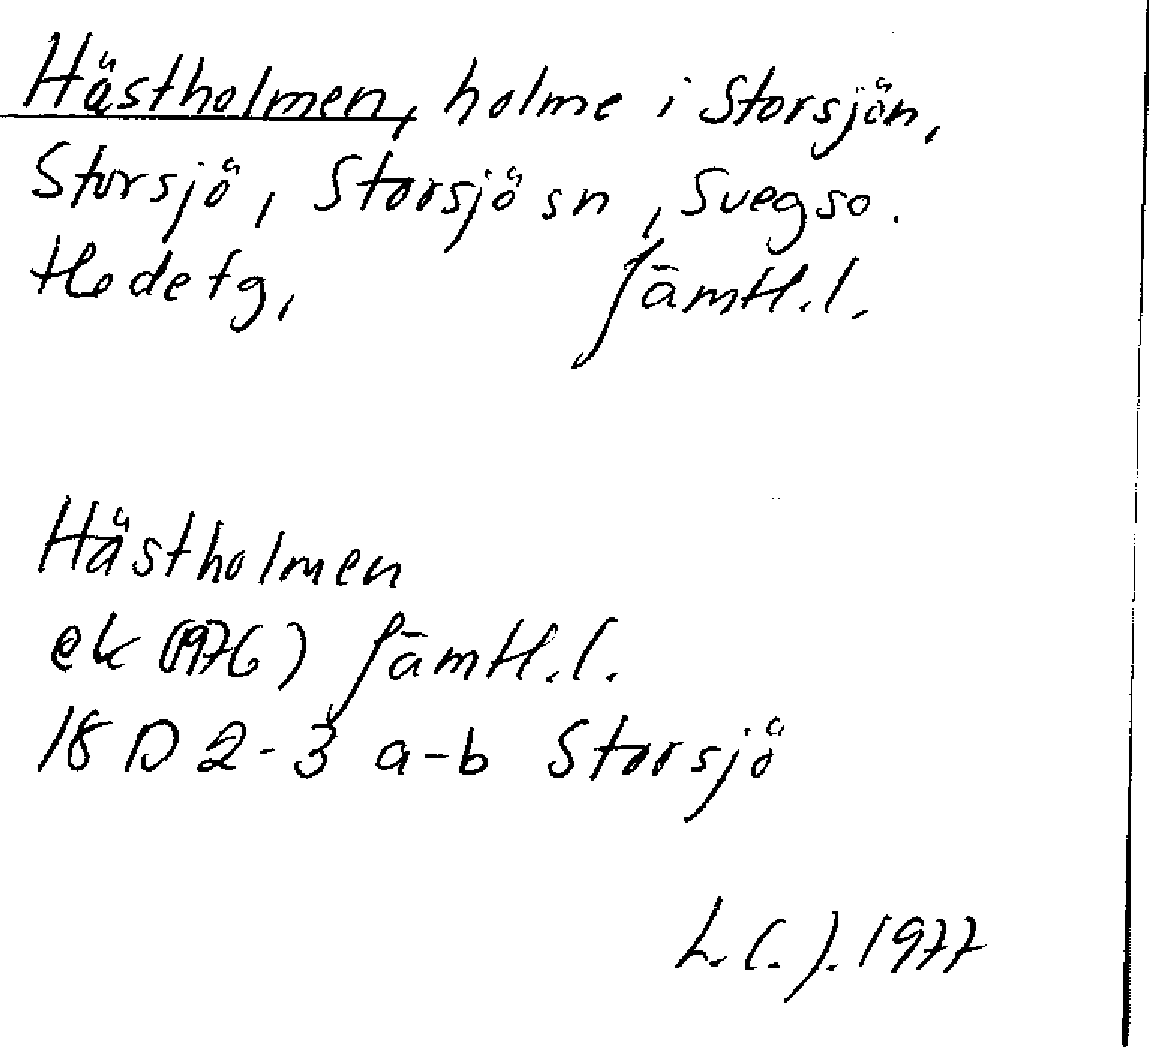 Hästholmen, holme i Storsjön,
Storsjö, Storsjö sn, Svegs o.
Hede tg, Jämtl.l.
Hästholmen
ek (1976) Jämtl.l.
18 D 2-3 a-b Storsjö
1977